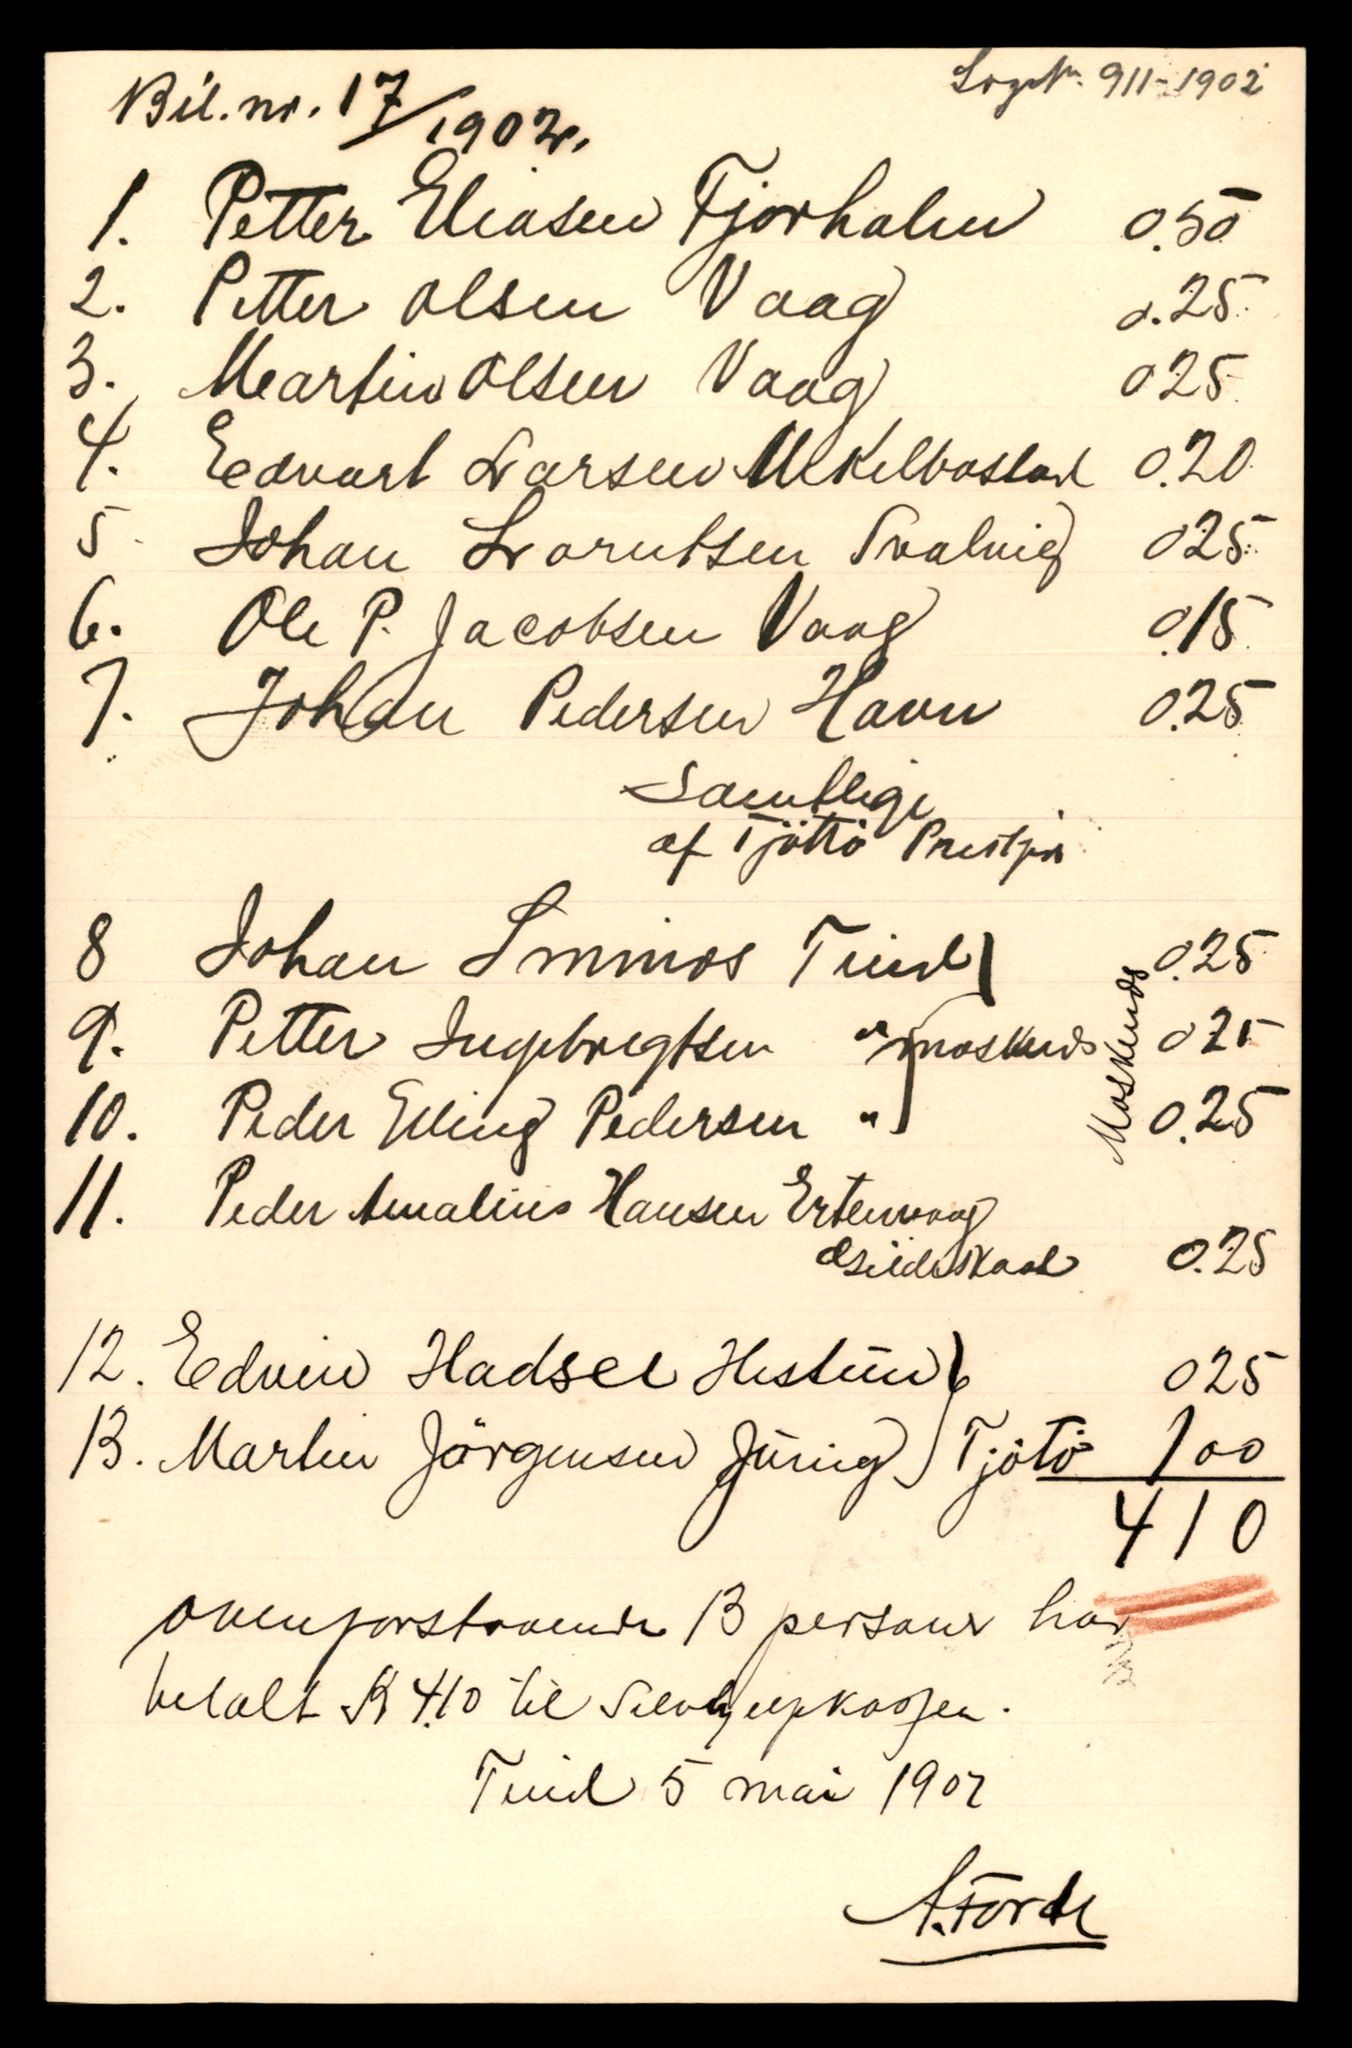 Bil. nr. 17/1902.
911-1902
1. Petter Eliasen Tjorholm 0.50
2. Petter Olsen Vaag 0.25
3. Martin Olsen Vaag 0 25
4. Edvart Larsen Mekelbostad 0.20
5 Johan Lorntsen Svalvig 0 25
6. Ole P. Jacobsen Vaag 0.15
7. Johan Pedersen Havn 0.25
Samtlige
af Tjöttö
8 Johan Tind 0.25
9. Petter Ingebregtsen " Moskenes 0 25
Moskenes
10. Peder Elling Pedersen " 0.25
11. Peder Amalius Hansen Ertenvaag
Gildeskaal 0.25
12. Edvin Hadsel Hestun 0 25
13. Martin Jörgensen Tjötö 1 00
4 10
ovenforstaaende 13 personer har
betalt K 4.10 til Selvhjelpkassen.
Tind 5 mai 1902
A. Förde